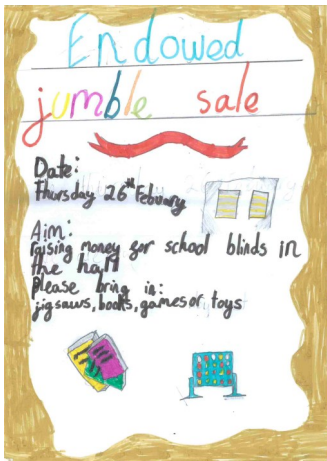 Endowed
jumble sale
Date:
thursday 26th Febuary
Aim:
raising money for school blinds in
the hall
Please bring in:
jigsaws, books, games or toys